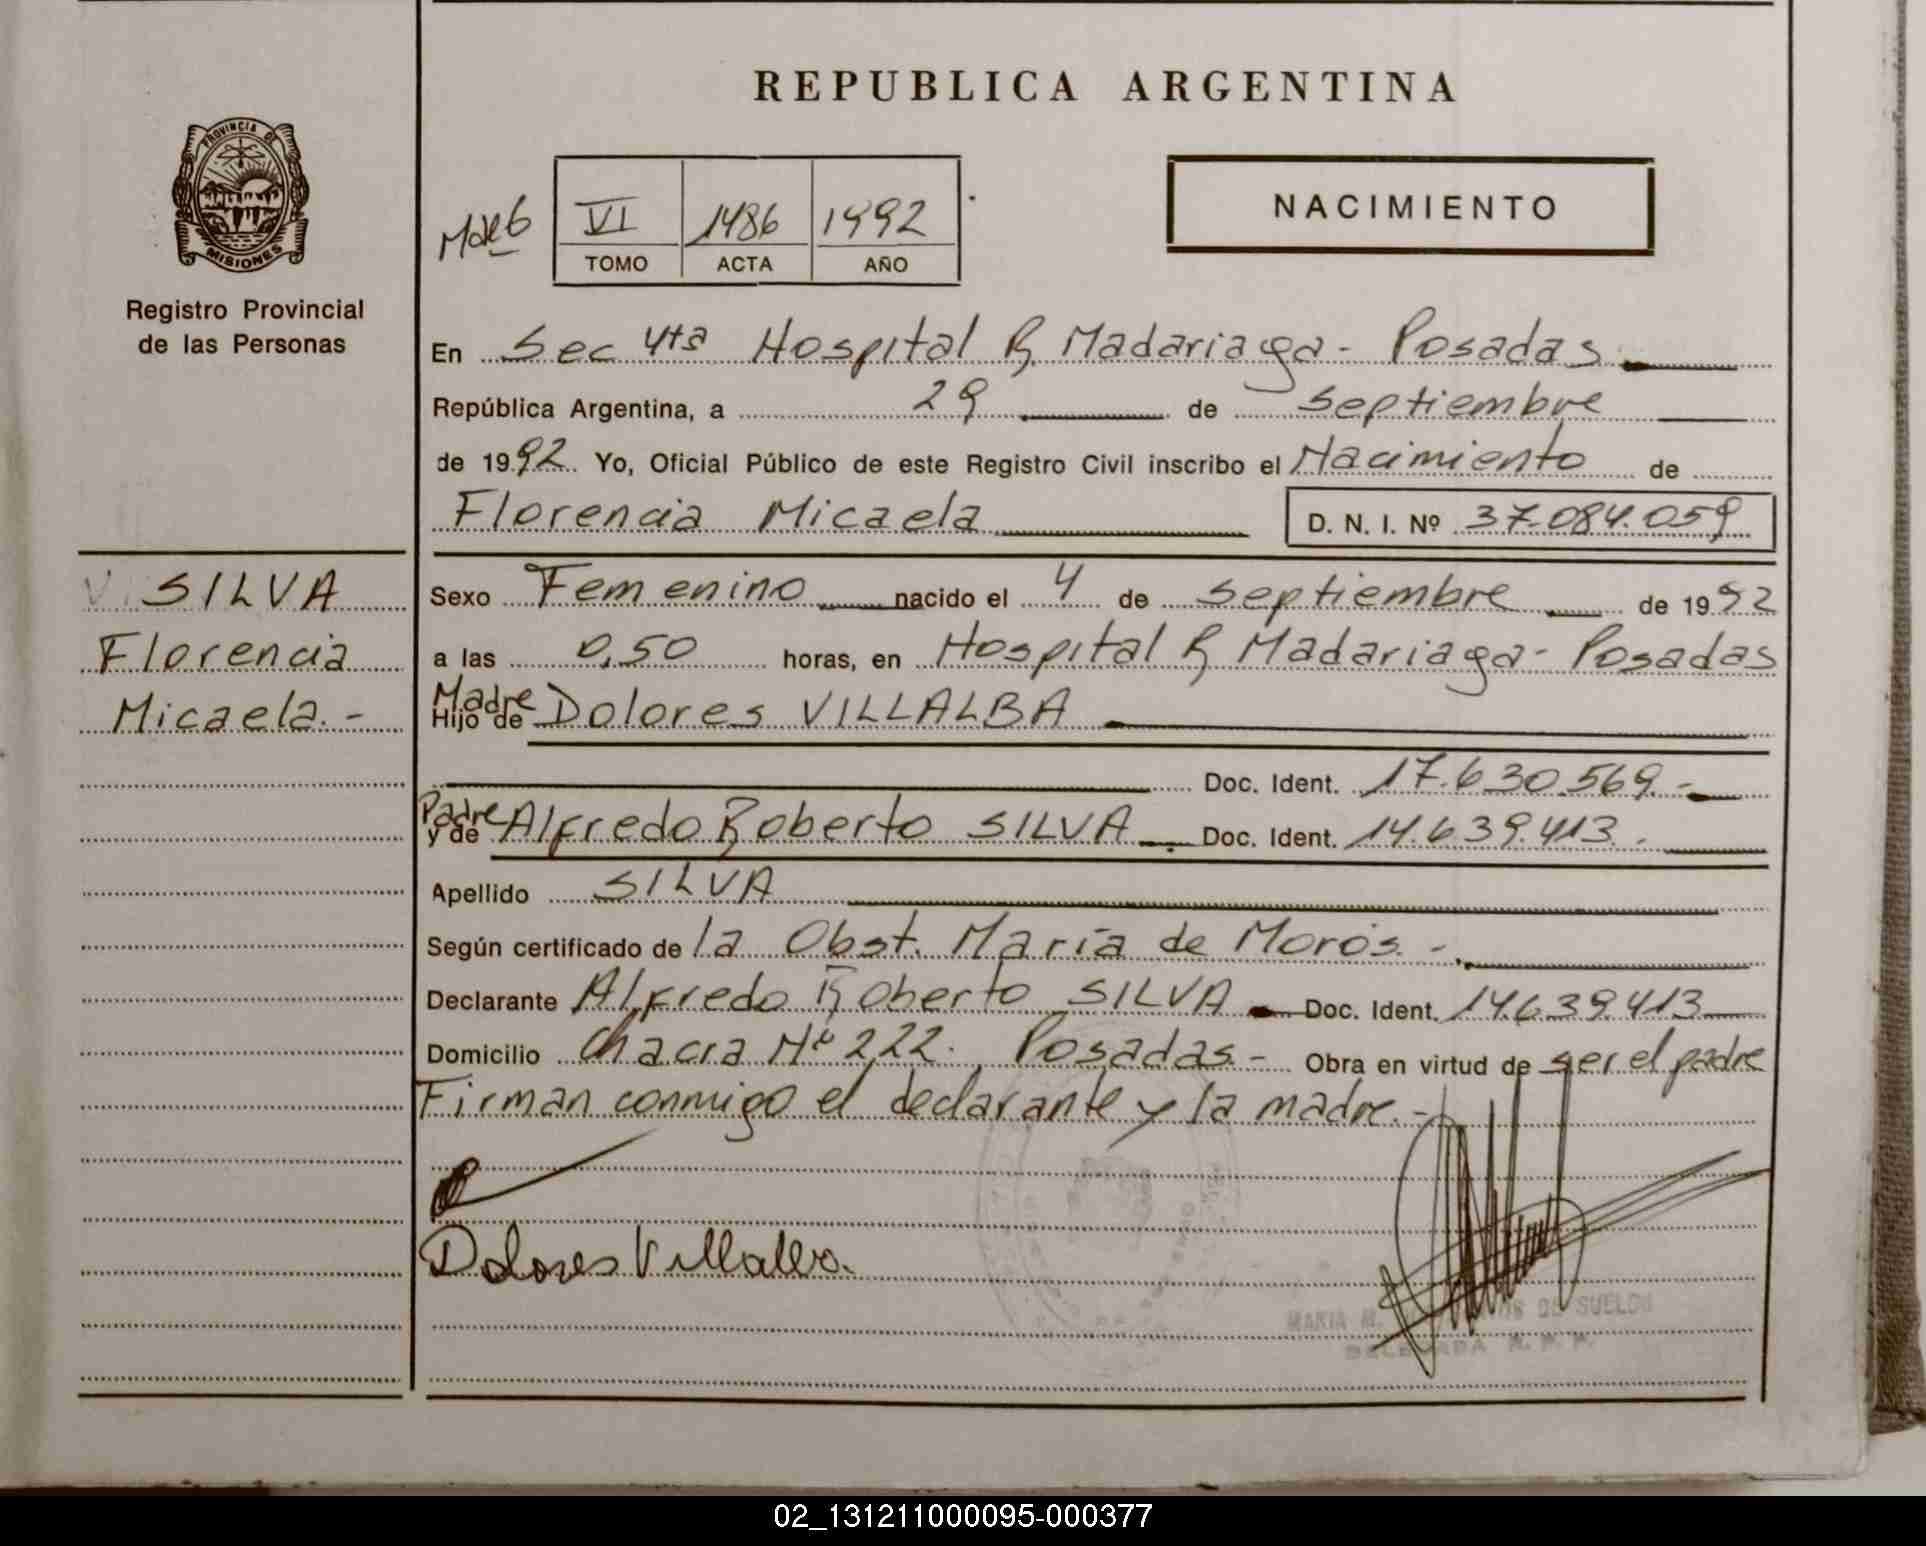 REPUBLICA ARGENTINA
PROVINCIA DE
MISIONES
Registro Provincial
de las Personas
VI 1486 1992
TOMO ACTA AÑO
NACIMIENTO
En Sec 4ta Hospital R. Madariaga - Posadas
República Argentina, a 29 de Septiembre
de 1992. Yo, Oficial Público de este Registro Civil inscribo el Nacimiento de
Florencia Micaela D. N. I. Nº 37.084.059
SILVA
Florencia
Micaela.-
Sexo Femenino nacido el 4 de Septiembre de 1992
a las 0,50 horas, en Hospital R. Madariaga - Posadas
Madre
Hijo de Dolores VILLALBA
Doc. Ident. 17.630.569.-
Padre
y de Alfredo Roberto SILVA Doc. Ident. 14.639.413.
Apellido SILVA
Según certificado de la Obst. María de Morós.-
Declarante Alfredo Roberto SILVA - Doc. Ident. 14.639.413
Domicilio Chacra Nº 222. Posadas.- Obra en virtud de ser el padre
Firman conmigo el declarante y la madre.-
Dolores Villalba.
MARIA M. DE SUELDO
DELEGADA R. P. P.
02_131211000095-000377